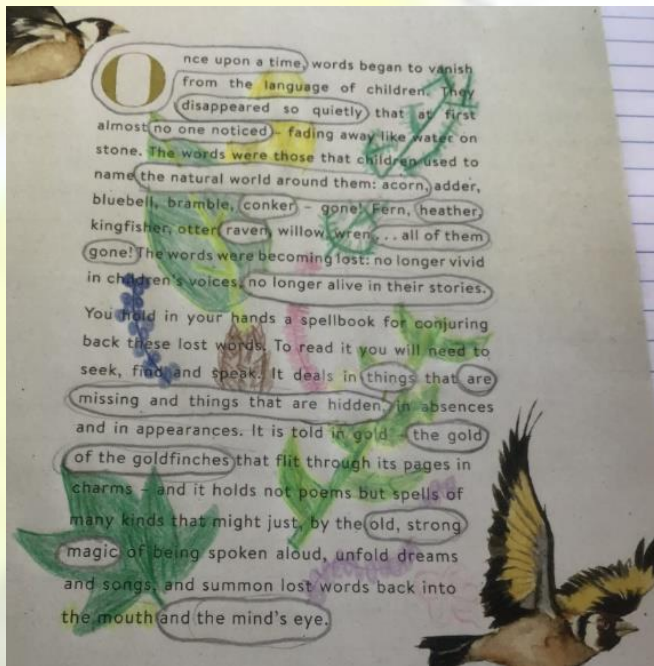 Once upon a time, words began to vanish
from the language of children. They
disappeared so quietly that at first
almost no one noticed – fading away like water on
stone. The words were those that children used to
name the natural world around them: acorn, adder,
bluebell, bramble, conker – gone! Fern, heather,
kingfisher, otter, raven, willow, wren... all of them
gone! The words were becoming lost: no longer vivid
in children's voices, no longer alive in their stories.
You hold in your hands a spellbook for conjuring
back these lost words. To read it you will need to
seek, find and speak. It deals in things that are
missing and things that are hidden, in absences
and in appearances. It is told in gold – the gold
of the goldfinches that flit through its pages in
charms – and it holds not poems but spells of
many kinds that might just, by the old, strong
magic of being spoken aloud, unfold dreams
and songs, and summon lost words back into
the mouth and the mind's eye.